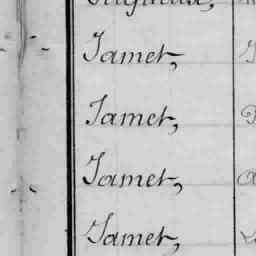 Jamet,
Jamet,
Jamet,
Jamet,